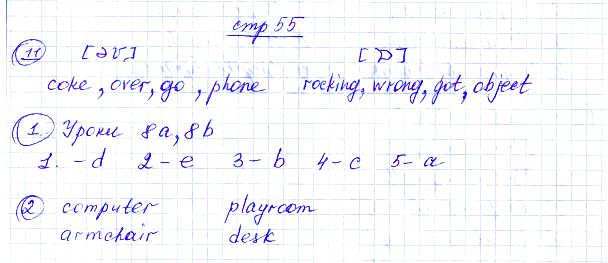 стр 55
11 [əʊ] [ɒ]
coke, over, go, phone rocking, wrong, got, object
1. Уроки 8a, 8b
1. - d 2 - e 3 - b 4 - c 5 - a
2 computer playroom
armchair desk